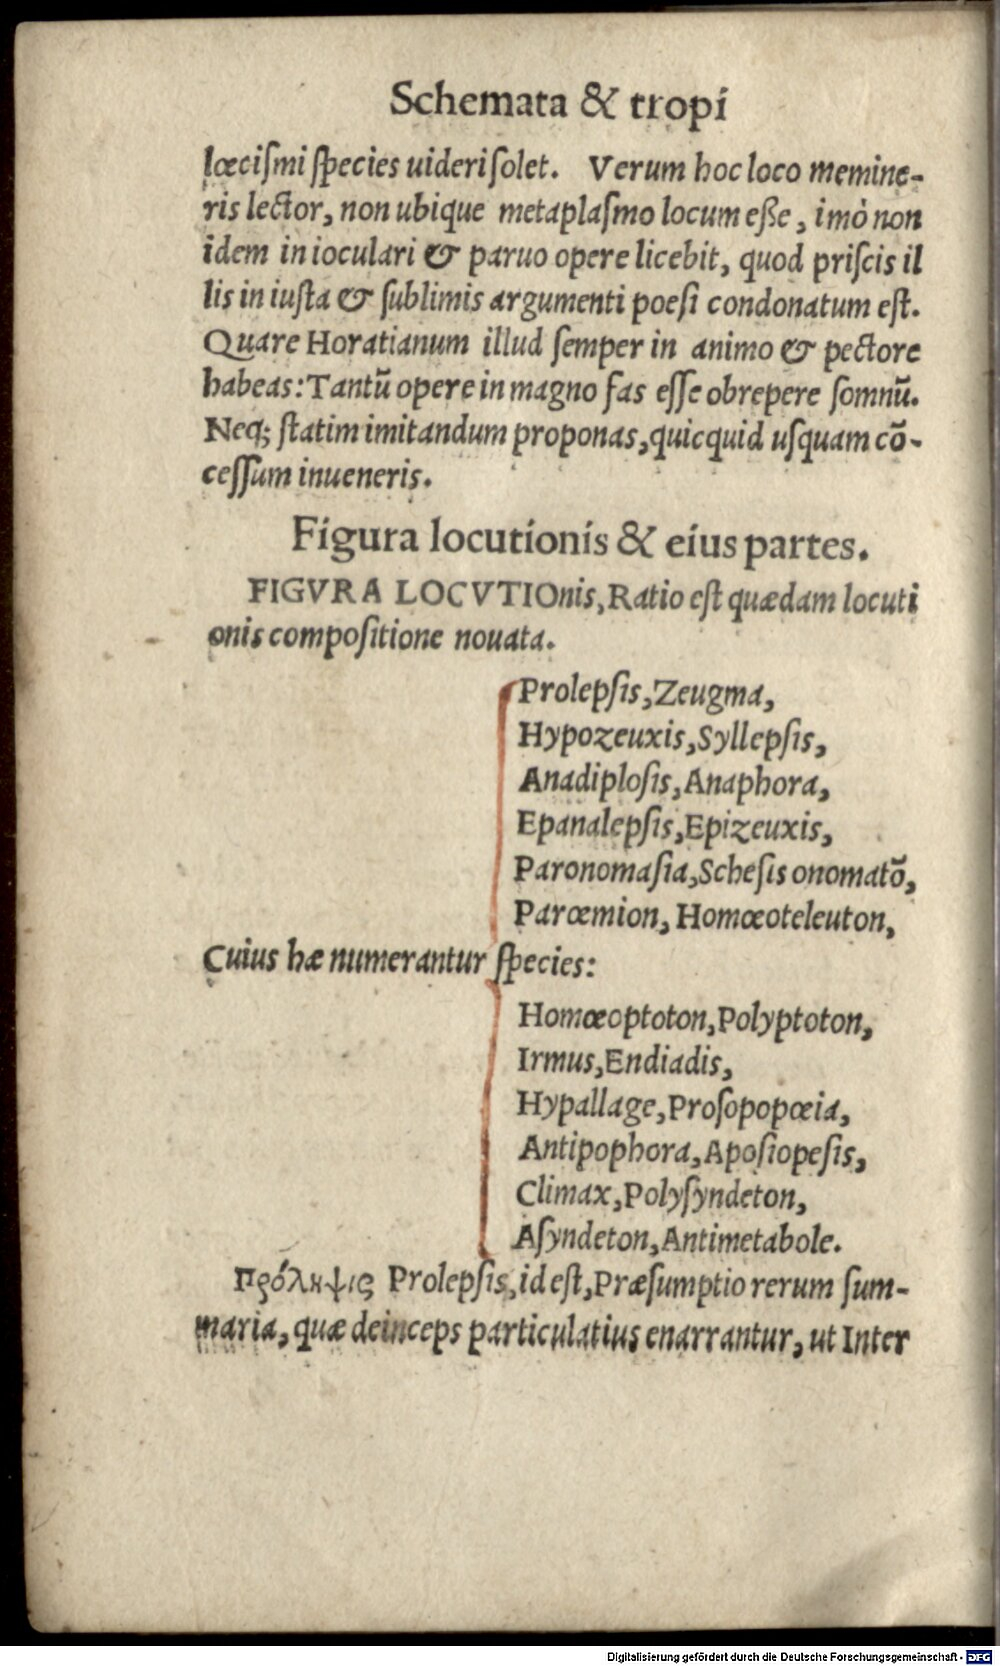 Schemata & tropi
lœciſmi ſpecies uideri ſolet. Verum hoc loco memine-
ris lector, non ubique metaplaſmo locum eſſe, imò non
idem in ioculari & paruo opere licebit, quod priſcis il
lis in iuſta & ſublimis argumenti poeſi condonatum eſt.
Quare Horatianum illud ſemper in animo & pectore
habeas: Tantū opere in magno fas eſſe obrepere ſomnū.
Neq; ſtatim imitandum proponas, quicquid uſquam cō-
ceſſum inueneris.
Figura locutionis & eius partes.
FIGVRA LOCVTIOnis, Ratio eſt quædam locuti
onis compoſitione nouata.
Prolepſis, Zeugma,
Hypozeuxis, Syllepſis,
Anadiploſis, Anaphora,
Epanalepſis, Epizeuxis,
Paronomaſia, Scheſis onomatō,
Parœmion, Homœoteleuton,
Cuius hæ numerantur ſpecies:
Homœoptoton, Polyptoton,
Irmus, Endiadis,
Hypallage, Proſopopœia,
Antipophora, Apoſiopeſis,
Climax, Polyſyndeton,
Aſyndeton, Antimetabole.
Πρόληψις Prolepſis, id eſt, Præſumptio rerum ſum-
maria, quæ deinceps particulatius enarrantur, ut Inter
Digitalisierung gefördert durch die Deutsche Forschungsgemeinschaft - DFG